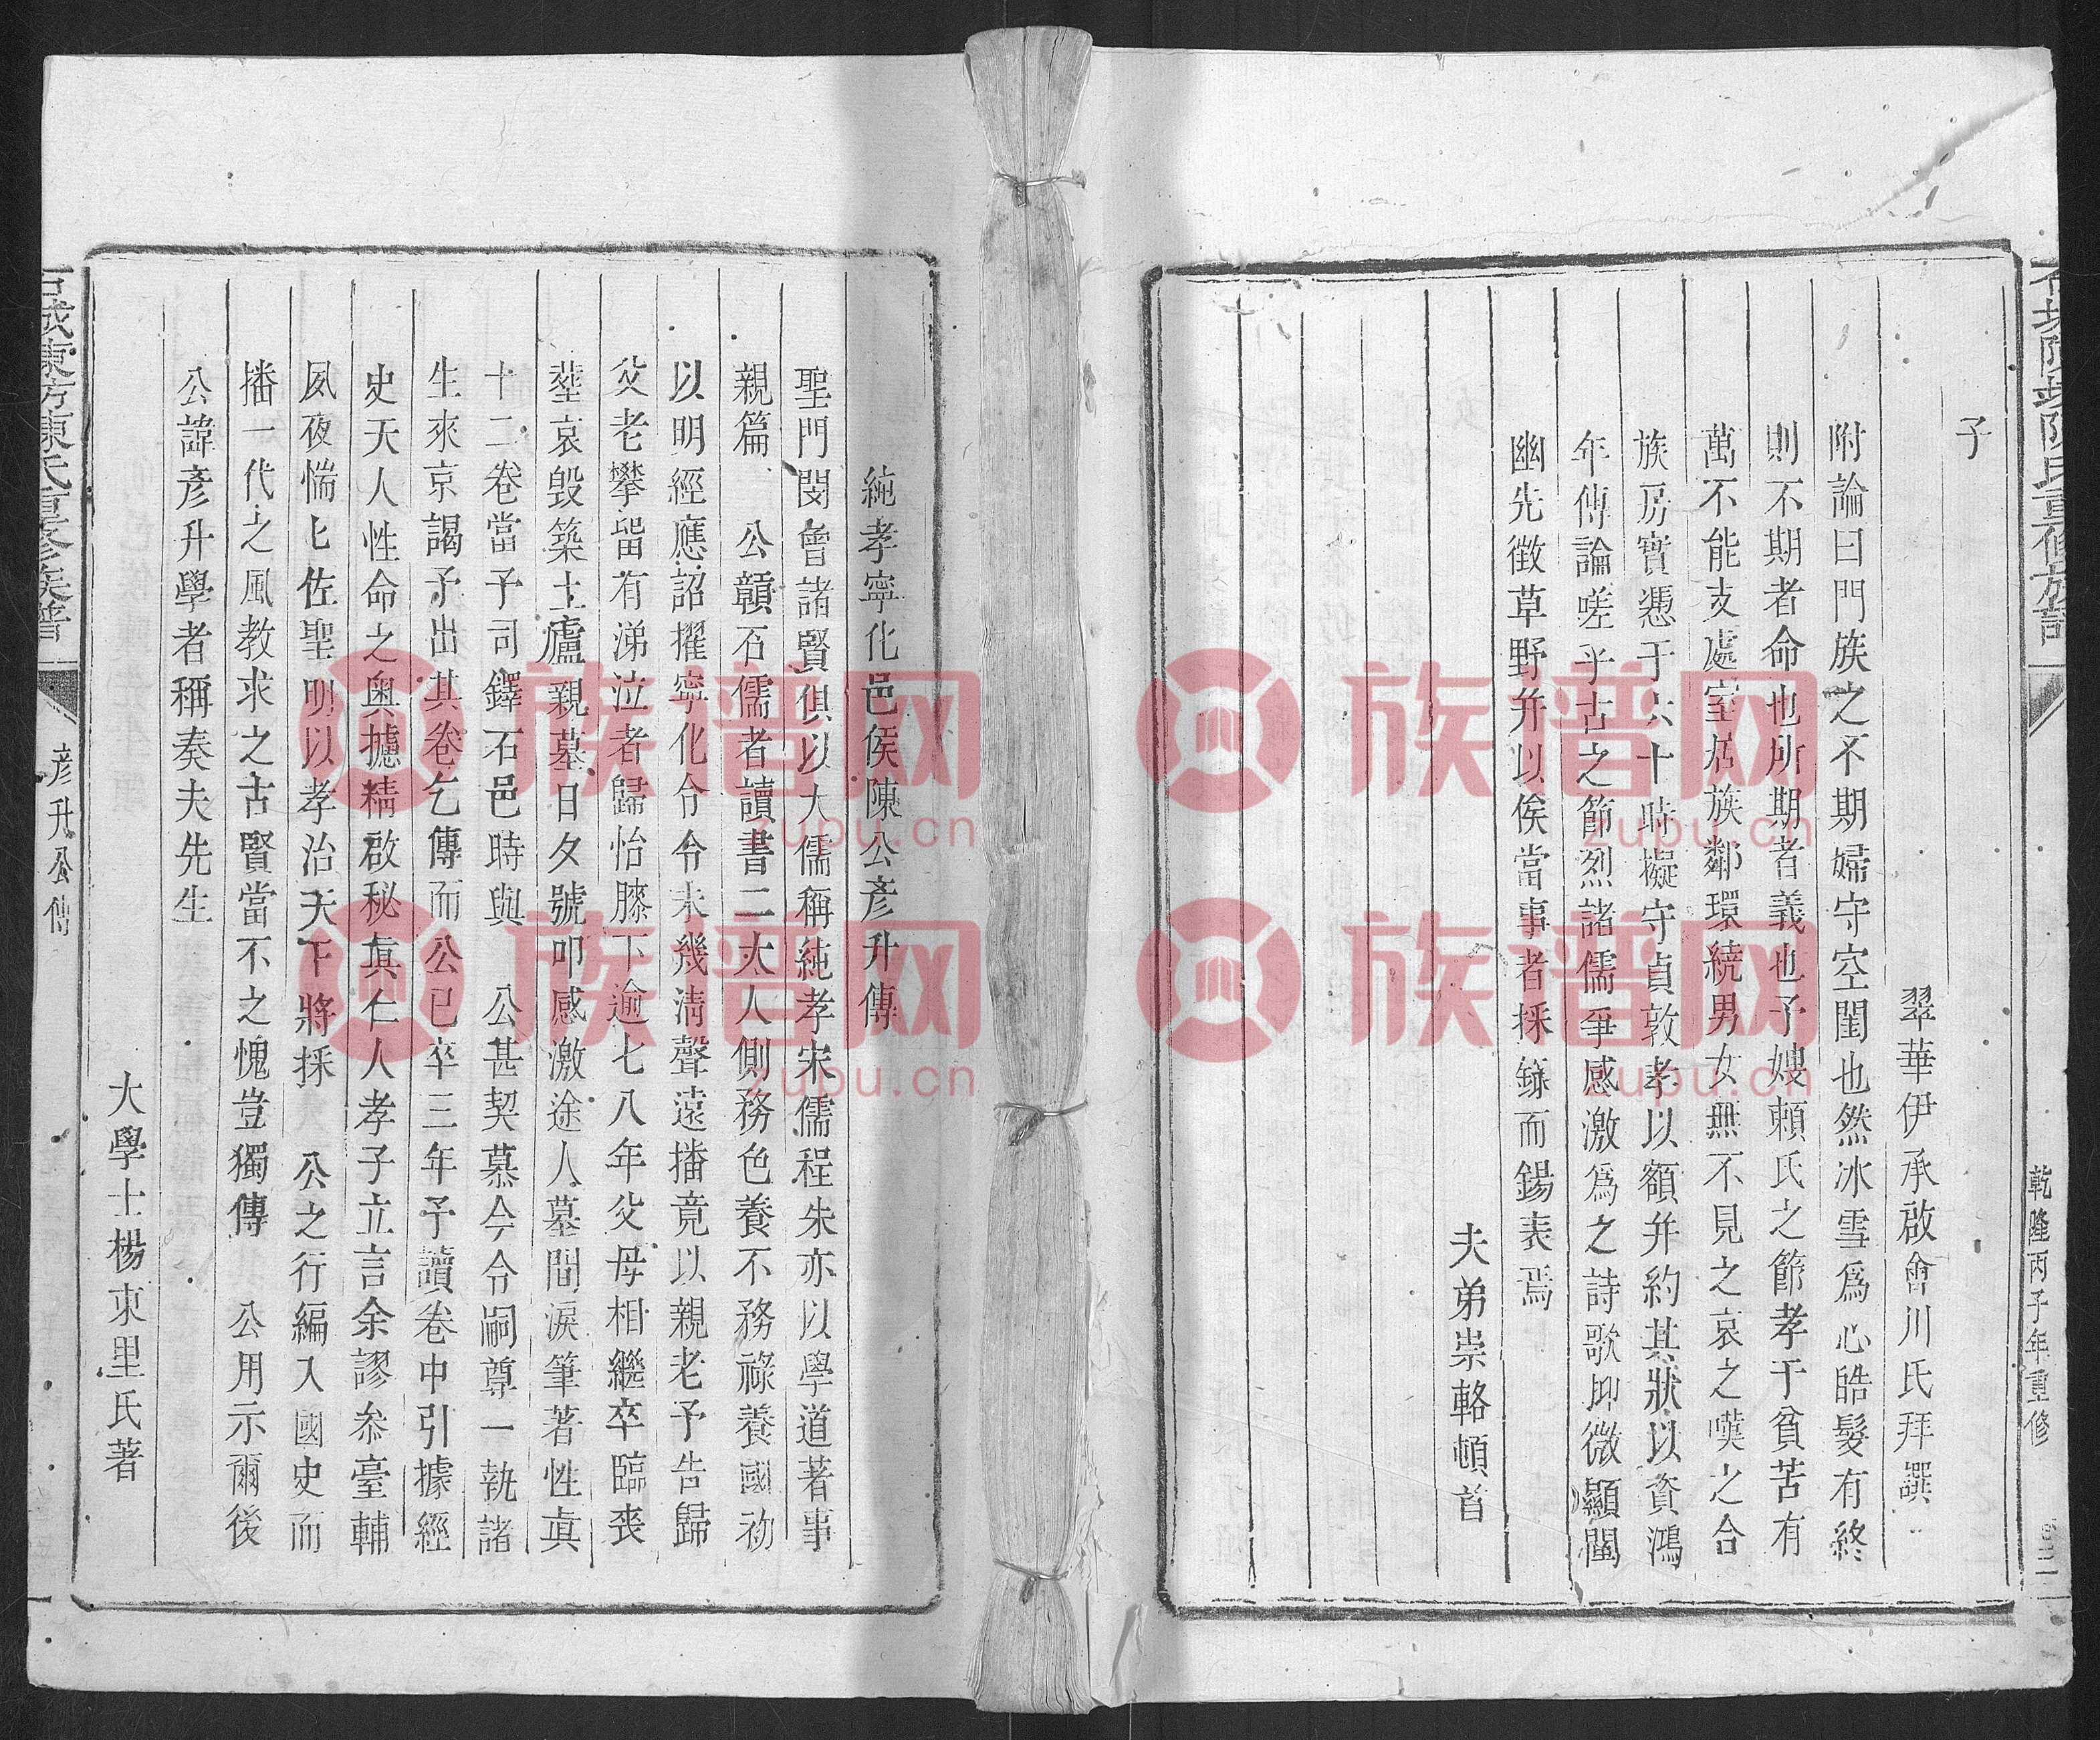 子
翠華伊承啟會川氏拜譔
附論曰門族之不期婦守空閨也然冰雪爲心皓髮有終
則不期者命也所期者義也予嫂賴氏之節孝干貧苦有
萬不能支處室居族鄰環繞男女無不見之哀之嘆之合
族房實憑于六十時擬守貞敦孝以額并約其狀以資鴻
年傳論嗟乎古之節烈諸儒爭感激爲之詩歌抑微顯闡
幽先徵草野并以俟當事者採錄而錫表焉
夫弟崇輅頓首
乾隆丙子年重修
純孝寧化邑侯陳公彥升傳
聖門閔曾諸賢俱以大儒稱純孝宋儒程朱亦以學道著事
親篇 公贛石儒者讀書二大人側務色養不務祿養國初
以明經應詔擢寧化令令未幾淸聲遠播竟以親老予告歸
父老攀留有涕泣者歸怡膝下逾七八年父母相繼卒臨喪
塟哀毀築土廬親墓日夕號叩感激途人墓間淚筆著性眞
十二卷當予司鐸石邑時與 公甚契慕今令嗣尊一執諸
生來京謁予出其卷乞傳而公已卒三年予讀卷中引據經
史天人性命之奧攄精啟秘眞仁人孝子立言余謬叅臺輔
夙夜惴匕佐聖明以孝治天下將採 公之行編入國史而
播一代之風教求之古賢當不之愧豈獨傳 公用示爾後
公諱彥升學者稱奏夫先生
大學士楊東里氏著
彥升公傳
族谱网
zupu.cn
族谱网
zupu.cn
族谱网
zupu.cn
族谱网
zupu.cn